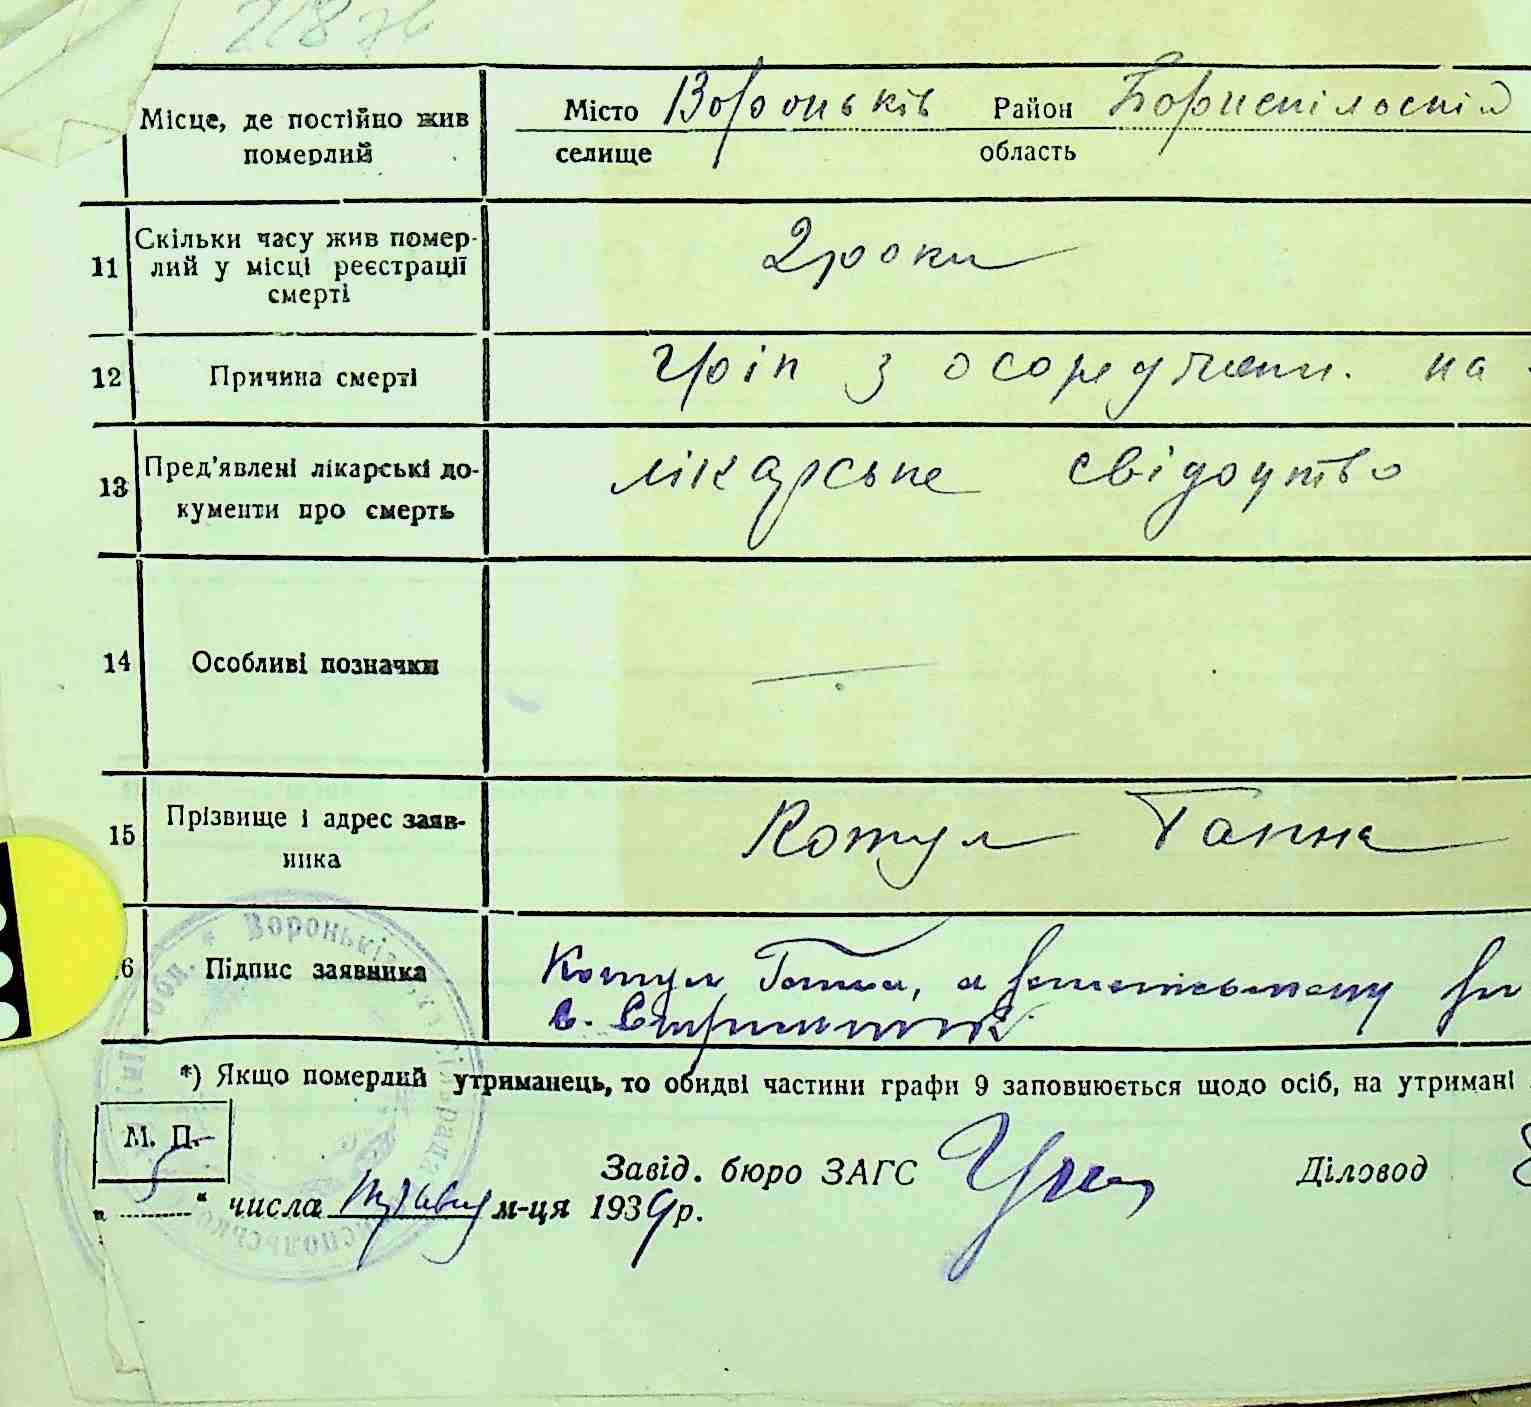 Місце, де постійно жив померлий
Місто селище Вороньків Район область Бориспільский
11 Скільки часу жив помер-
лий у місці реєстрації
смерті
2 роки
12 Причина смерті
Гріп з осоружнен. на
13 Пред'явлені лікарські до-
кументи про смерть
лікарське свідоцтво
14 Особливі позначки
—
15 Прізвище і адрес заяв-
ника
Котул Ганна
6 Підпис заявника
Котул Ганна, а
*) Якщо померлий утриманець, то обидві частини графи 9 заповнюється щодо осіб, на утримані
М. П.
Завід. бюро ЗАГС
Діловод
„ 5 “ числа травня м-ця 1939 р.